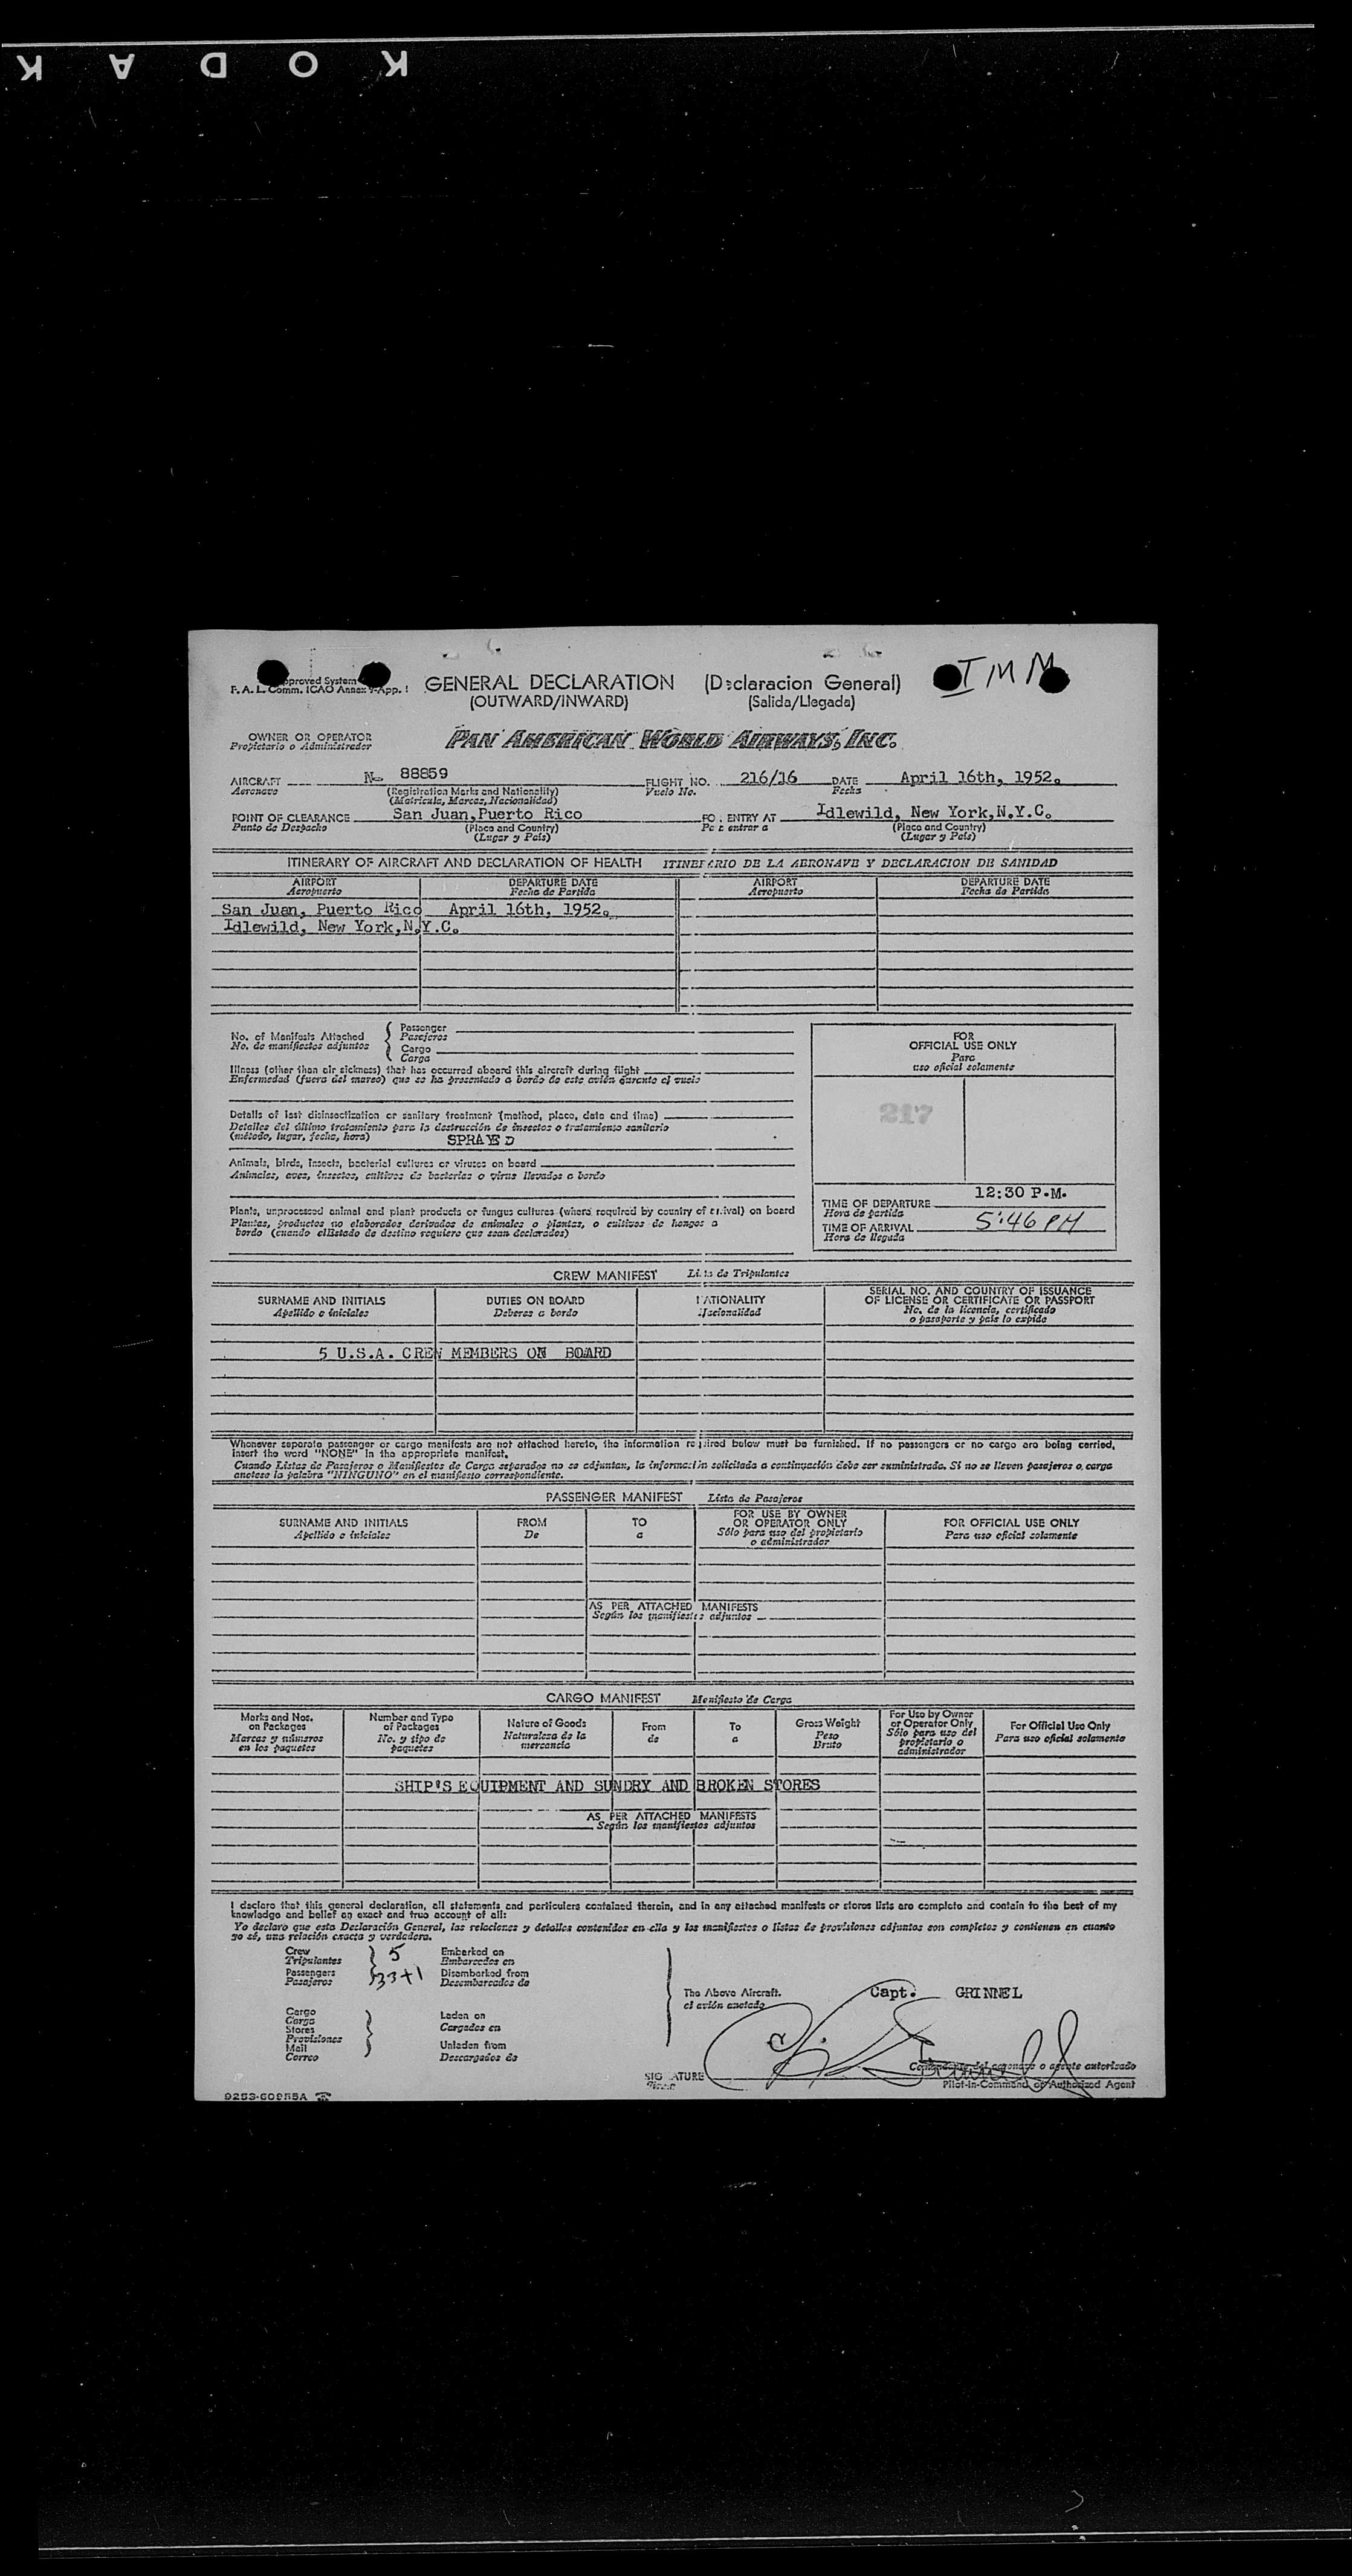 KODAK
Approved System
F. A. L. Comm. ICAO Annex 9-App. I
GENERAL DECLARATION (Declaracion General)
(OUTWARD/INWARD) (Salida/Llegada)
IMM
OWNER OR OPERATOR
Propietario o Administrador
PAN AMERICAN WORLD AIRWAYS, INC.
AIRCRAFT N- 88859 FLIGHT NO. 216/16 DATE April 16th, 1952.
Aeronave (Registration Marks and Nationality) Vuelo No. Fecha
(Matricula, Marcas, Nacionalidad)
POINT OF CLEARANCE San Juan,Puerto Rico FO ENTRY AT Idlewild, New York,N.Y.C.
Punto de Despacho (Place and Country) Pa entrar a (Place and Country)
(Lugar y País) (Lugar y País)
ITINERARY OF AIRCRAFT AND DECLARATION OF HEALTH ITINERARIO DE LA AERONAVE Y DECLARACION DE SANIDAD
AIRPORT DEPARTURE DATE AIRPORT DEPARTURE DATE
Aeropuerto Fecha de Partida Aeropuerto Fecha de Partida
San Juan, Puerto Rico April 16th, 1952.
Idlewild, New York,N.Y.C.
No. of Manifests Attached
No. de manifiestos adjuntos
Passenger
Pasajeros
Cargo
Carga
Illness (other than air sickness) that has occurred aboard this aircraft during flight
Enfermedad (fuera del mareo) que se ha presentado a bordo de este avión durante el vuelo
Details of last disinsectization or sanitary treatment (method, place, date and time)
Detalles del último tratamiento para la destrucción de insectos o tratamiento sanitario
(método, lugar, fecha, hora) SPRAYED
Animals, birds, insects, bacterial cultures or viruses on board
Animales, aves, insectos, cultivos de bacterias o virus llevados a bordo
Plants, unprocessed animal and plant products or fungus cultures (where required by country of arrival) on board
Plantas, productos no elaborados derivados de animales o plantas, o cultivos de hongos a
bordo (cuando el Estado de destino requiere que sean declarados)
FOR
OFFICIAL USE ONLY
Para
uso oficial solamente
217
TIME OF DEPARTURE 12:30 P.M.
Hora de partida
TIME OF ARRIVAL 5:46 PM
Hora de llegada
CREW MANIFEST Lista de Tripulantes
SURNAME AND INITIALS DUTIES ON BOARD NATIONALITY SERIAL NO. AND COUNTRY OF ISSUANCE
OF LICENSE OR CERTIFICATE OR PASSPORT
Apellido e iniciales Deberes a bordo Nacionalidad No. de la licencia, certificado
o pasaporte y país lo expide
5 U.S.A. CREW MEMBERS ON BOARD
Whenever separate passenger or cargo manifests are not attached hereto, the information required below must be furnished. If no passengers or no cargo are being carried,
insert the word "NONE" in the appropriate manifest.
Cuando Listas de Pasajeros o Manifiestos de Carga separados no se adjuntan, la información solicitada a continuación debe ser suministrada. Si no se lleven pasajeros o carga
anotese la palabra "NINGUNO" en el manifiesto correspondiente.
PASSENGER MANIFEST Lista de Pasajeros
SURNAME AND INITIALS FROM TO FOR USE BY OWNER
OR OPERATOR ONLY FOR OFFICIAL USE ONLY
Apellido e iniciales De a Sólo para uso del propietario
o administrador Para uso oficial solamente
AS PER ATTACHED MANIFESTS
Según los manifiestos adjuntos
CARGO MANIFEST Manifiesto de Carga
Marks and Nos.
on Packages
Marcas y números
en los paquetes
Number and Type
of Packages
No. y tipo de
paquetes
Nature of Goods
Naturaleza de la
mercancia
From
de
To
a
Gross Weight
Peso
Bruto
For Use by Owner
or Operator Only
Sólo para uso del
propietario o
administrador
For Official Use Only
Para uso oficial solamente
SHIP'S EQUIPMENT AND SUNDRY AND BROKEN STORES
AS PER ATTACHED MANIFESTS
Según los manifiestos adjuntos
I declare that this general declaration, all statements and particulars contained therein, and in any attached manifests or stores lists are complete and contain to the best of my
knowledge and belief an exact and true account of all:
Yo declaro que esta Declaración General, las relaciones y detalles contenidos en ella y los manifiestos o listas de provisiones adjuntos son completos y contienen en cuanto
yo sé, una relación exacta y verdadera.
Crew
Tripulantes 5
Passengers
Pasajeros 33+1
Embarked on
Embarcados en
Disembarked from
Desembarcados de
Cargo
Carga
Stores
Provisiones
Mail
Correo
Laden on
Cargados en
Unladen from
Descargados de
The Above Aircraft.
el avión anotado
Capt. GRINNEL
SIGNATURE
Firma
Comandante del aeronave o agente autorizado
Pilot-in-Command or Authorized Agent
9253-60955A